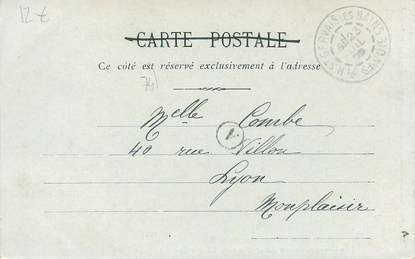 12 €
CARTE POSTALE
Ce côté est réservé exclusivement à l'adresse
74
Melle Combe
40 rue Villon
Lyon
Monplaisir
ST GERVAIS-LES-BAINS